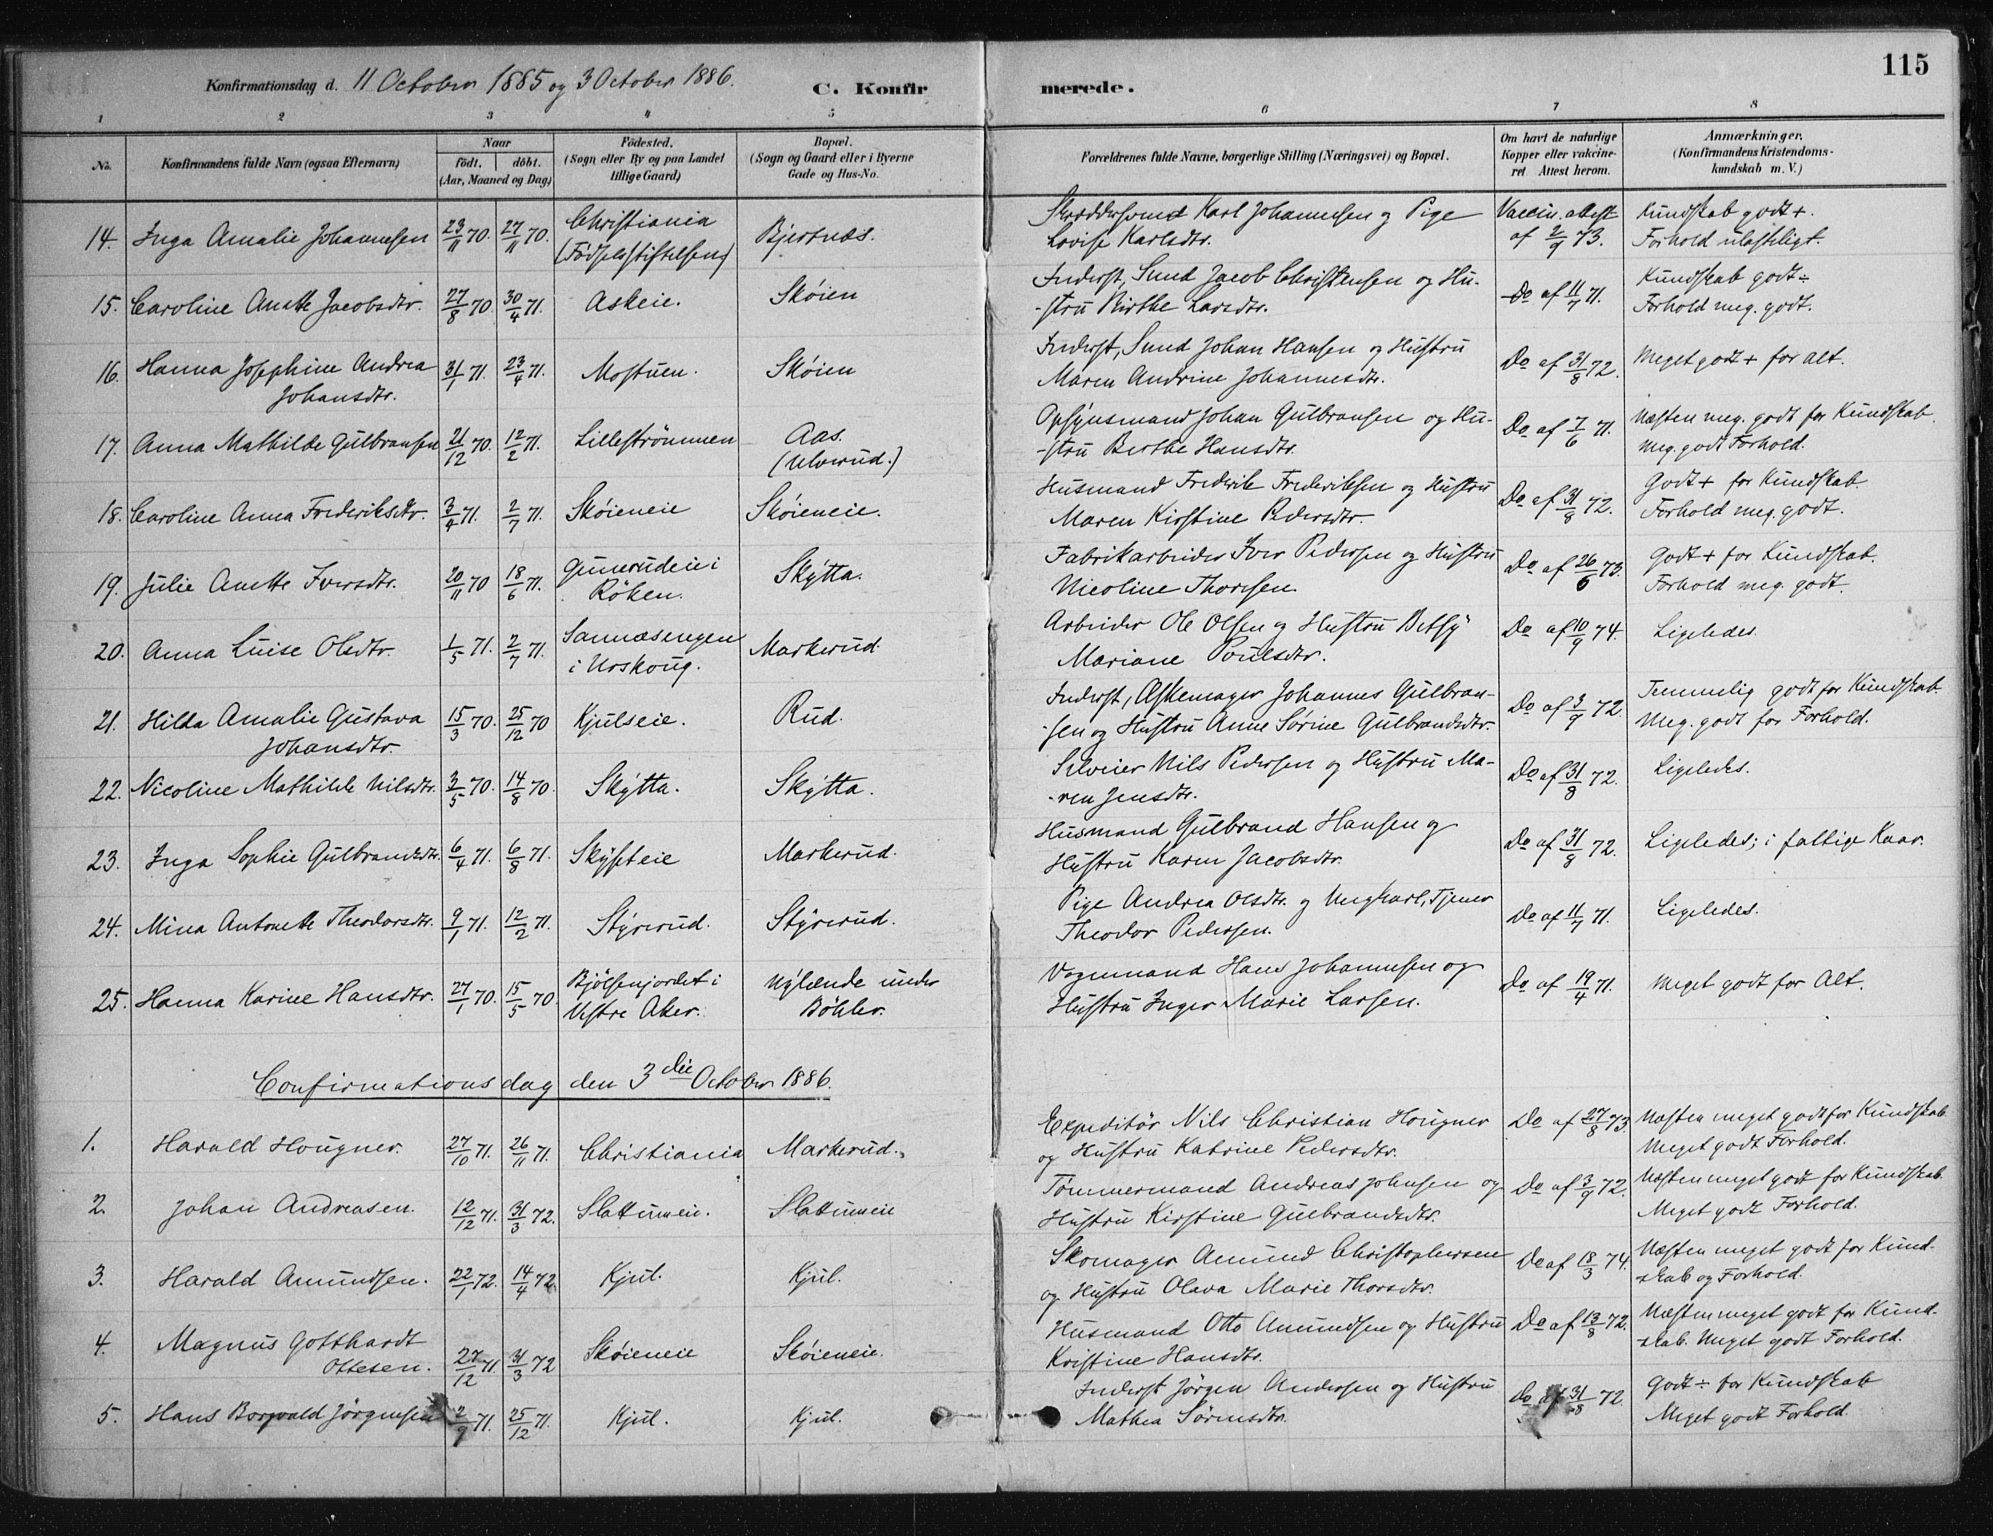 115
Konfirmationsdag d. 11 October 1885 og 3 October 1886. C. Konfir merede.
1 2 3 4 5 6 7 8
No. Konfirmandens fulde Navn (ogsaa Efternavn) Naar født, døbt. (Aar, Maaned og Dag) Fødested. (Sogn eller By og paa Landet tillige Gaard) Bopæl. (Sogn og Gaard eller i Byerne Gade og Hus-No. Forældrenes fulde Navne, borgerlige Stilling (Næringsvei) og Bopæl. Om havt de naturlige Kopper eller vakcineret Attest herom. Anmærkninger. (Konfirmandens Kristendomskundskab m. V.)
14. Inga Amalie Johannesen 23/11 70. 27/11 70. Christiania (Fødselsstiftelsen) Bjertnæs. Skræddersvend Karl Johannesen og Pige Lovise Karlsdtr. Vaccin. attest af 2/9 73. Kundskab godt+. Forhold ulasteligt.
15. Caroline Anette Jacobsdtr. 27/8 70. 30/4 71. Askeie. Skøien Inderst, Smed Jacob Christensen og Hu- -stru Birthe Larsdtr. Do af 11/7 71. Kundskab godt÷ Forhold meg. godt.
16. Hanna Josephine Andrea Johansdtr. 31/1 71. 23/4 71. Mostuen. Skøien Inderst, Smed Johan Hansen og Hustru Maren Andrine Johannesdtr. Do af 31/8 72. Meget godt+ for alt.
17. Anna Mathilde Gulbransen 21/12 70. 12/2 71. Lillestrømmen Aas. (Ulverud.) Opsynsmand Johan Gulbransen og Hu- -stru Berthe Hansdtr. Do af 7/6 71. Næsten meg. godt for Kundskab. Meg. godt Forhold.
18. Caroline Anna Frederiksdtr. 3/4 71. 2/7 71. Skøieneie Skøieneie. Husmand Frederik Frederiksen og Hustru Maren Kirstine Pedersdtr. Do af 31/8 72. Godt+ for Kundskab. Forhold meg. godt.
19. Julie Anette Iversdtr. 20/11 70 18/6 71. Gunerudeie i Røken. Skytta. Fabrikarbeider Iver Pedersen og Hustru Nicoline Thoresen. Do af 26/6 73. Godt+ for Kundskab. Forhold meg. godt.
20. Anna Luise Olsdtr. 1/5 71. 2/7 71. Sannæsengen i Urskoug. Markerud. Arbeider Ole Olsen og Hustru Betsy Mariane Poulsdtr. Do af 10/9 74. Ligeledes.
21. Hilda Amalie Gustava Johansdtr. 15/3 70. 25/12 70 Kjulseie. Rud. Inderst, Æskemager Johannes Gulbran- -sen og Hustru Anne Sørine Gulbrandsdtr. Do af 3/9 72. Temmelig godt for Kundskab. Meg. godt for Forhold.
22. Nicoline Mathilde Nilsdtr. 3/5 70. 14/8 70. Skytta. Skytta. Selveier Nils Pedersen og Hustru Ma- -ren Jensdtr. Do af 31/8 72. Ligeledes.
23. Inga Sophie Gulbrandsdtr. 6/4 71. 6/8 71. Markerud. Husmand Gulbrand Hansen og Hustru Karen Jacobsdtr. Do af 31/8 72. Ligeledes; i fattige Kaar.
24. Mina Antonette Theodorsdtr. 9/1 71. 12/2 71. Styrerud. Styrerud. Pige Andrea Olsdtr. og Ungkarl, Tjener Theodor Pedersen. Do af 11/7 71. Ligeledes.
25. Hanna Karine Hansdtr. 27/1 70. 15/5 70. Bjølsenjordet i Vestre Aker. Nylænde under Bøhler. Vognmand Hans Johannesen og Hustru Inger Marie Larsen. Do af 19/4 71. Meget godt for Alt.
Confirmationsdag den 3die October 1886.
1. Harald Hougner. 27/10 71. 26/11 71. Christiania Markerud. Expeditør Nils Christian Hougner og Hustru Katrine Pedersdtr. Do af 27/8 73. Næsten meget godt for Kundskab Meget godt Forhold.
2. Johan Andreasen. 12/12 71. 31/3 72. Slattumeie. Slattumeie Tømmermand Andreas Johnsen og Hustru Kirstine Gulbrandsdtr. Do af 3/9 72. Næsten meget godt for Kundskab. Meget godt Forhold.
3. Harald Amundsen. 22/1 72. 14/4 72. Kjul. Kjul. Skomager Amund Christophersen og Hustru Olava Marie Thorsdtr. Do af 18/3 74. Næsten meget godt for Kund- -skab og Forhold.
4. Magnus Gotthardt Ottesen. 27/12 71. 31/3 72 Skøieneie Skøieneie. Husmand Otto Amundsen og Hustru Kristine Hansdtr. Do af 13/8 72. Næsten meget godt for Kund- -skab. Meget godt Forhold.
5. Hans Borgvald Jørgensen 2/9 71. 25/12 71. Kjul. Kjul. Inderst Jørgen Andersen og Hustru Mathea Sørensdtr. Do af 31/8 72. Godt÷ for Kundskab Meget godt Forhold.